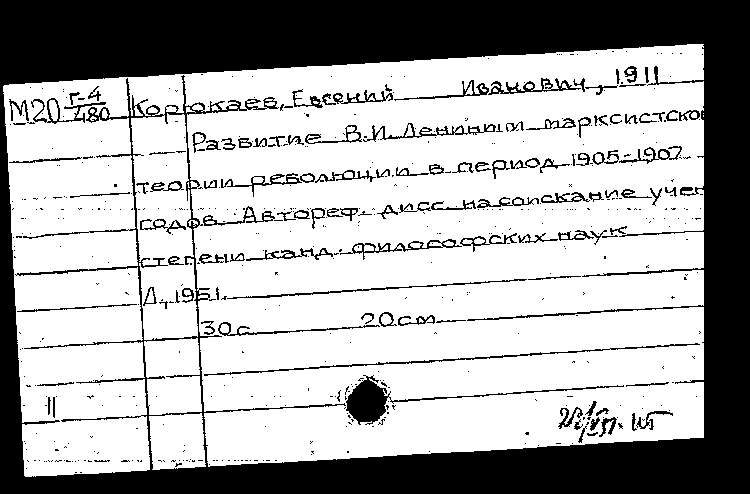 М20 Г-4/480 Корюкаев, Евгений Иванович, 1911
Развитие В.И. Лениным марксистской
теории революции в период 1905-1907
годов. Автореф. дисс. на соискание учен
степени канд. философских наук
Л., 1951.
30с 20см
||